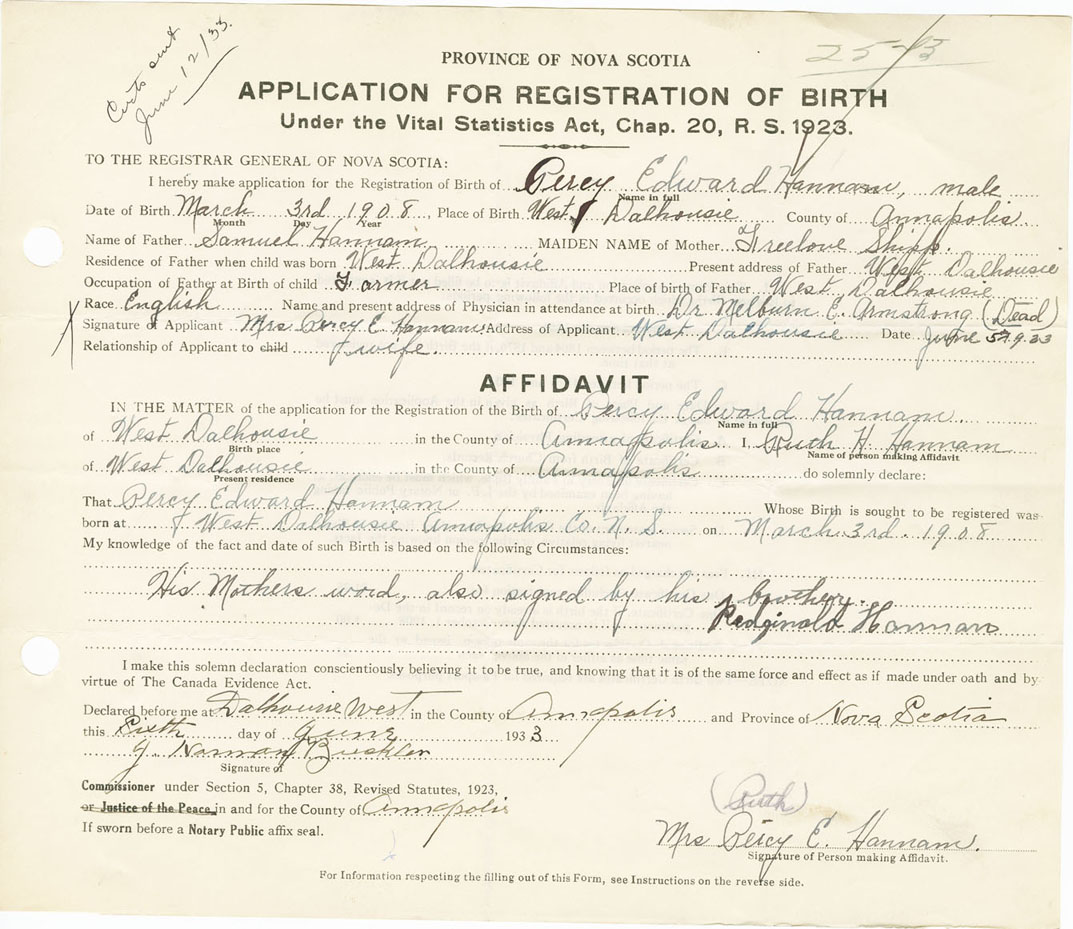 Certs sent
June 12/33.
PROVINCE OF NOVA SCOTIA
APPLICATION FOR REGISTRATION OF BIRTH
Under the Vital Statistics Act, Chap. 20, R. S. 1923.
TO THE REGISTRAR GENERAL OF NOVA SCOTIA:
I hereby make application for the Registration of Birth of Percy Edward Hannam, male
Name in full
Date of Birth March 3rd 1908, Place of Birth West Dalhousie County of Annapolis.
Month Day Year
Name of Father Samuel Hannam MAIDEN NAME of Mother Freelove Shipp.
Residence of Father when child was born West Dalhousie Present address of Father West Dalhousie
Occupation of Father at Birth of child Farmer Place of birth of Father West Dalhousie
Race English Name and present address of Physician in attendance at birth Dr Melburn E. Armstrong (Dead)
Signature of Applicant Mrs Percy E. Hannam Address of Applicant West Dalhousie Date June 5th 1933
Relationship of Applicant to child wife.
AFFIDAVIT
IN THE MATTER of the application for the Registration of the Birth of Percy Edward Hannam
Name in full
of West Dalhousie in the County of Annapolis I, Ruth H. Hannam
Birth place Name of person making Affidavit
of West Dalhousie in the County of Annapolis do solemnly declare:
Present residence
That Percy Edward Hannam Whose Birth is sought to be registered was
born at West Dalhousie Annapolis Co. N. S. on March 3rd. 1908
My knowledge of the fact and date of such Birth is based on the following Circumstances:
His Mothers word, also signed by his brother.
Redginald Hannam
I make this solemn declaration conscientiously believing it to be true, and knowing that it is of the same force and effect as if made under oath and by
virtue of The Canada Evidence Act.
Declared before me at Dalhousie West in the County of Annapolis and Province of Nova Scotia
this Sixth day of June 1933
J. Norman
Signature of
Commissioner under Section 5, Chapter 38, Revised Statutes, 1923,
or Justice of the Peace, in and for the County of Annapolis
If sworn before a Notary Public affix seal.
(Ruth)
Mrs Percy E. Hannam.
Signature of Person making Affidavit.
For Information respecting the filling out of this Form, see Instructions on the reverse side.